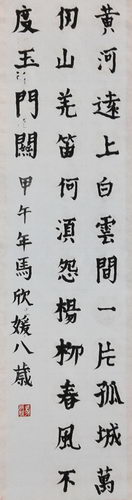 黃河遠上白雲間一片孤城萬
仞山羌笛何湏怨楊柳春風不
度玉門關 甲午年馬欣媛八歲